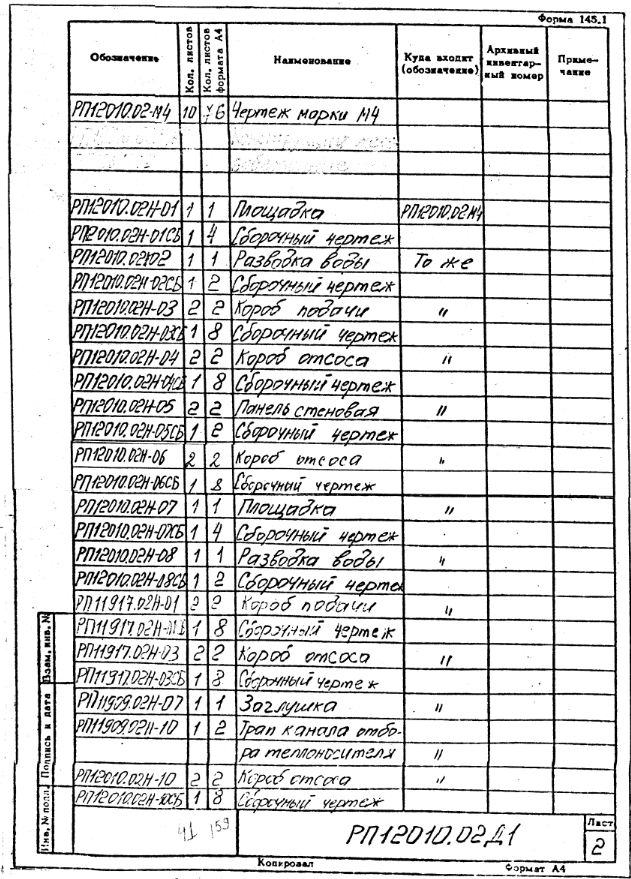 Форма 145.1
Обозначение Кол. листов Кол. листов формата А4 Наименование Куда входит (обозначение) Архивный инвентарный номер Примечание
РП12010.02-М4 10 6 Чертеж марки М4
РП12010.02Н-01 1 1 Площадка РП12010.02М4
РП12010.02Н-01СБ 1 4 Сборочный чертеж
РП12010.02Н-02 1 1 Разводка воды То же
РП12010.02Н-02СБ 1 2 Сборочный чертеж
РП12010.02Н-03 2 2 Короб подачи "
РП12010.02Н-03СБ 1 8 Сборочный чертеж
РП12010.02Н-04 2 2 Короб отсоса "
РП12010.02Н-04СБ 1 8 Сборочный чертеж
РП12010.02Н-05 2 2 Панель стеновая "
РП12010.02Н-05СБ 1 2 Сборочный чертеж
РП12010.02Н-06 2 2 Короб отсоса "
РП12010.02Н-06СБ 1 8 Сборочный чертеж
РП12010.02Н-07 1 1 Площадка "
РП12010.02Н-07СБ 1 4 Сборочный чертеж
РП12010.02Н-08 1 1 Разводка воды "
РП12010.02Н-08СБ 1 2 Сборочный чертеж
РП11917.02Н-01 2 2 Короб подачи "
РП11917.02Н-01СБ 1 8 Сборочный чертеж
РП11917.02Н-03 2 2 Короб отсоса "
РП11917.02Н-03СБ 1 8 Сборочный чертеж
РП11909.02Н-07 1 1 Заглушка "
РП11909.02Н-10 1 2 Трап канала отбо-
ра теплоносителя "
РП12010.02Н-10 2 2 Короб отсоса "
РП12010.02Н-10СБ 1 8 Сборочный чертеж
Инв. № подл. Подпись и дата Взам. инв. №
41 159
РП12010.02Д1
Лист
2
Копировал Формат А4